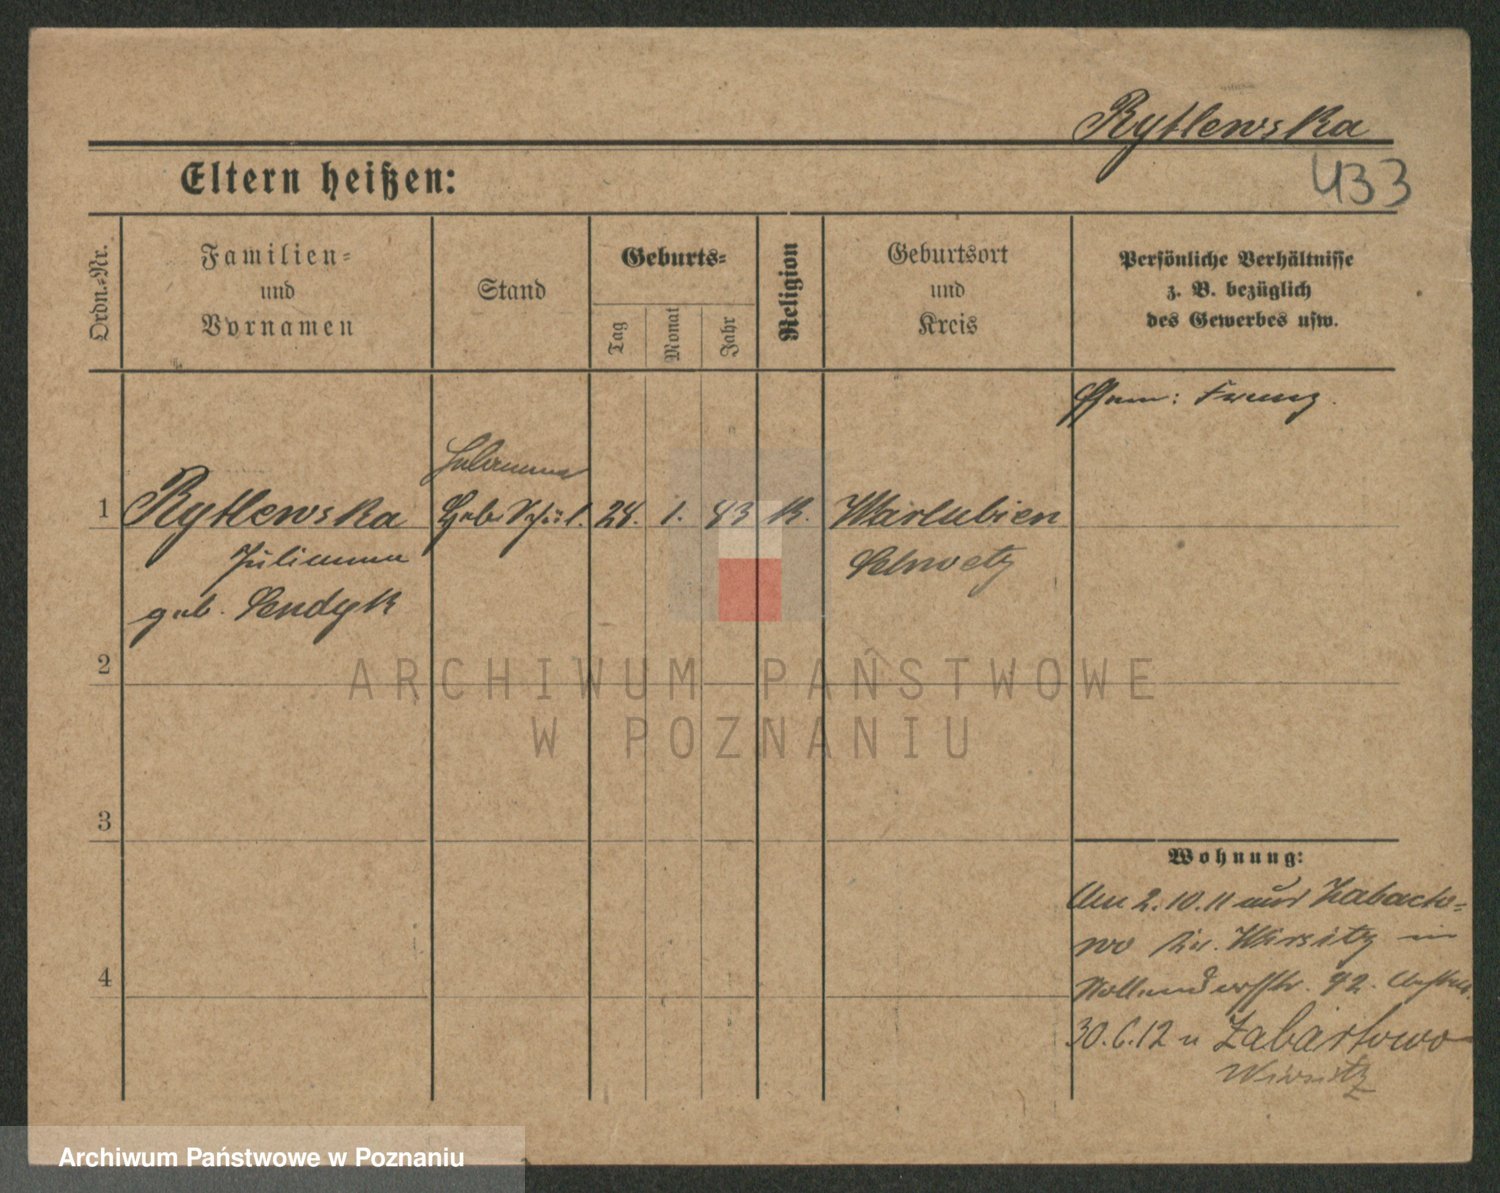 Rytlewska
433
Eltern heißen:
Ordn.-Nr.
Familien-
und
Vornamen
Stand
Geburts-
Tag
Monat
Jahr
Religion
Geburtsort
und
Kreis
Persönliche Verhältnisse
z. B. bezüglich
des Gewerbes usw.
Franz.
Hebamme
1
Rytlewska
28.
1.
83
K.
Warlubien
Julianna
Schwetz
geb. Sendyk
2
3
4
Wohnung:
Am 2.10.11 aus
wo Kr. Wirsitz in
42.
30.6.12 n Zabartowo
Wirsitz
ARCHIWUM PAŃSTWOWE
W POZNANIU
Archiwum Państwowe w Poznaniu